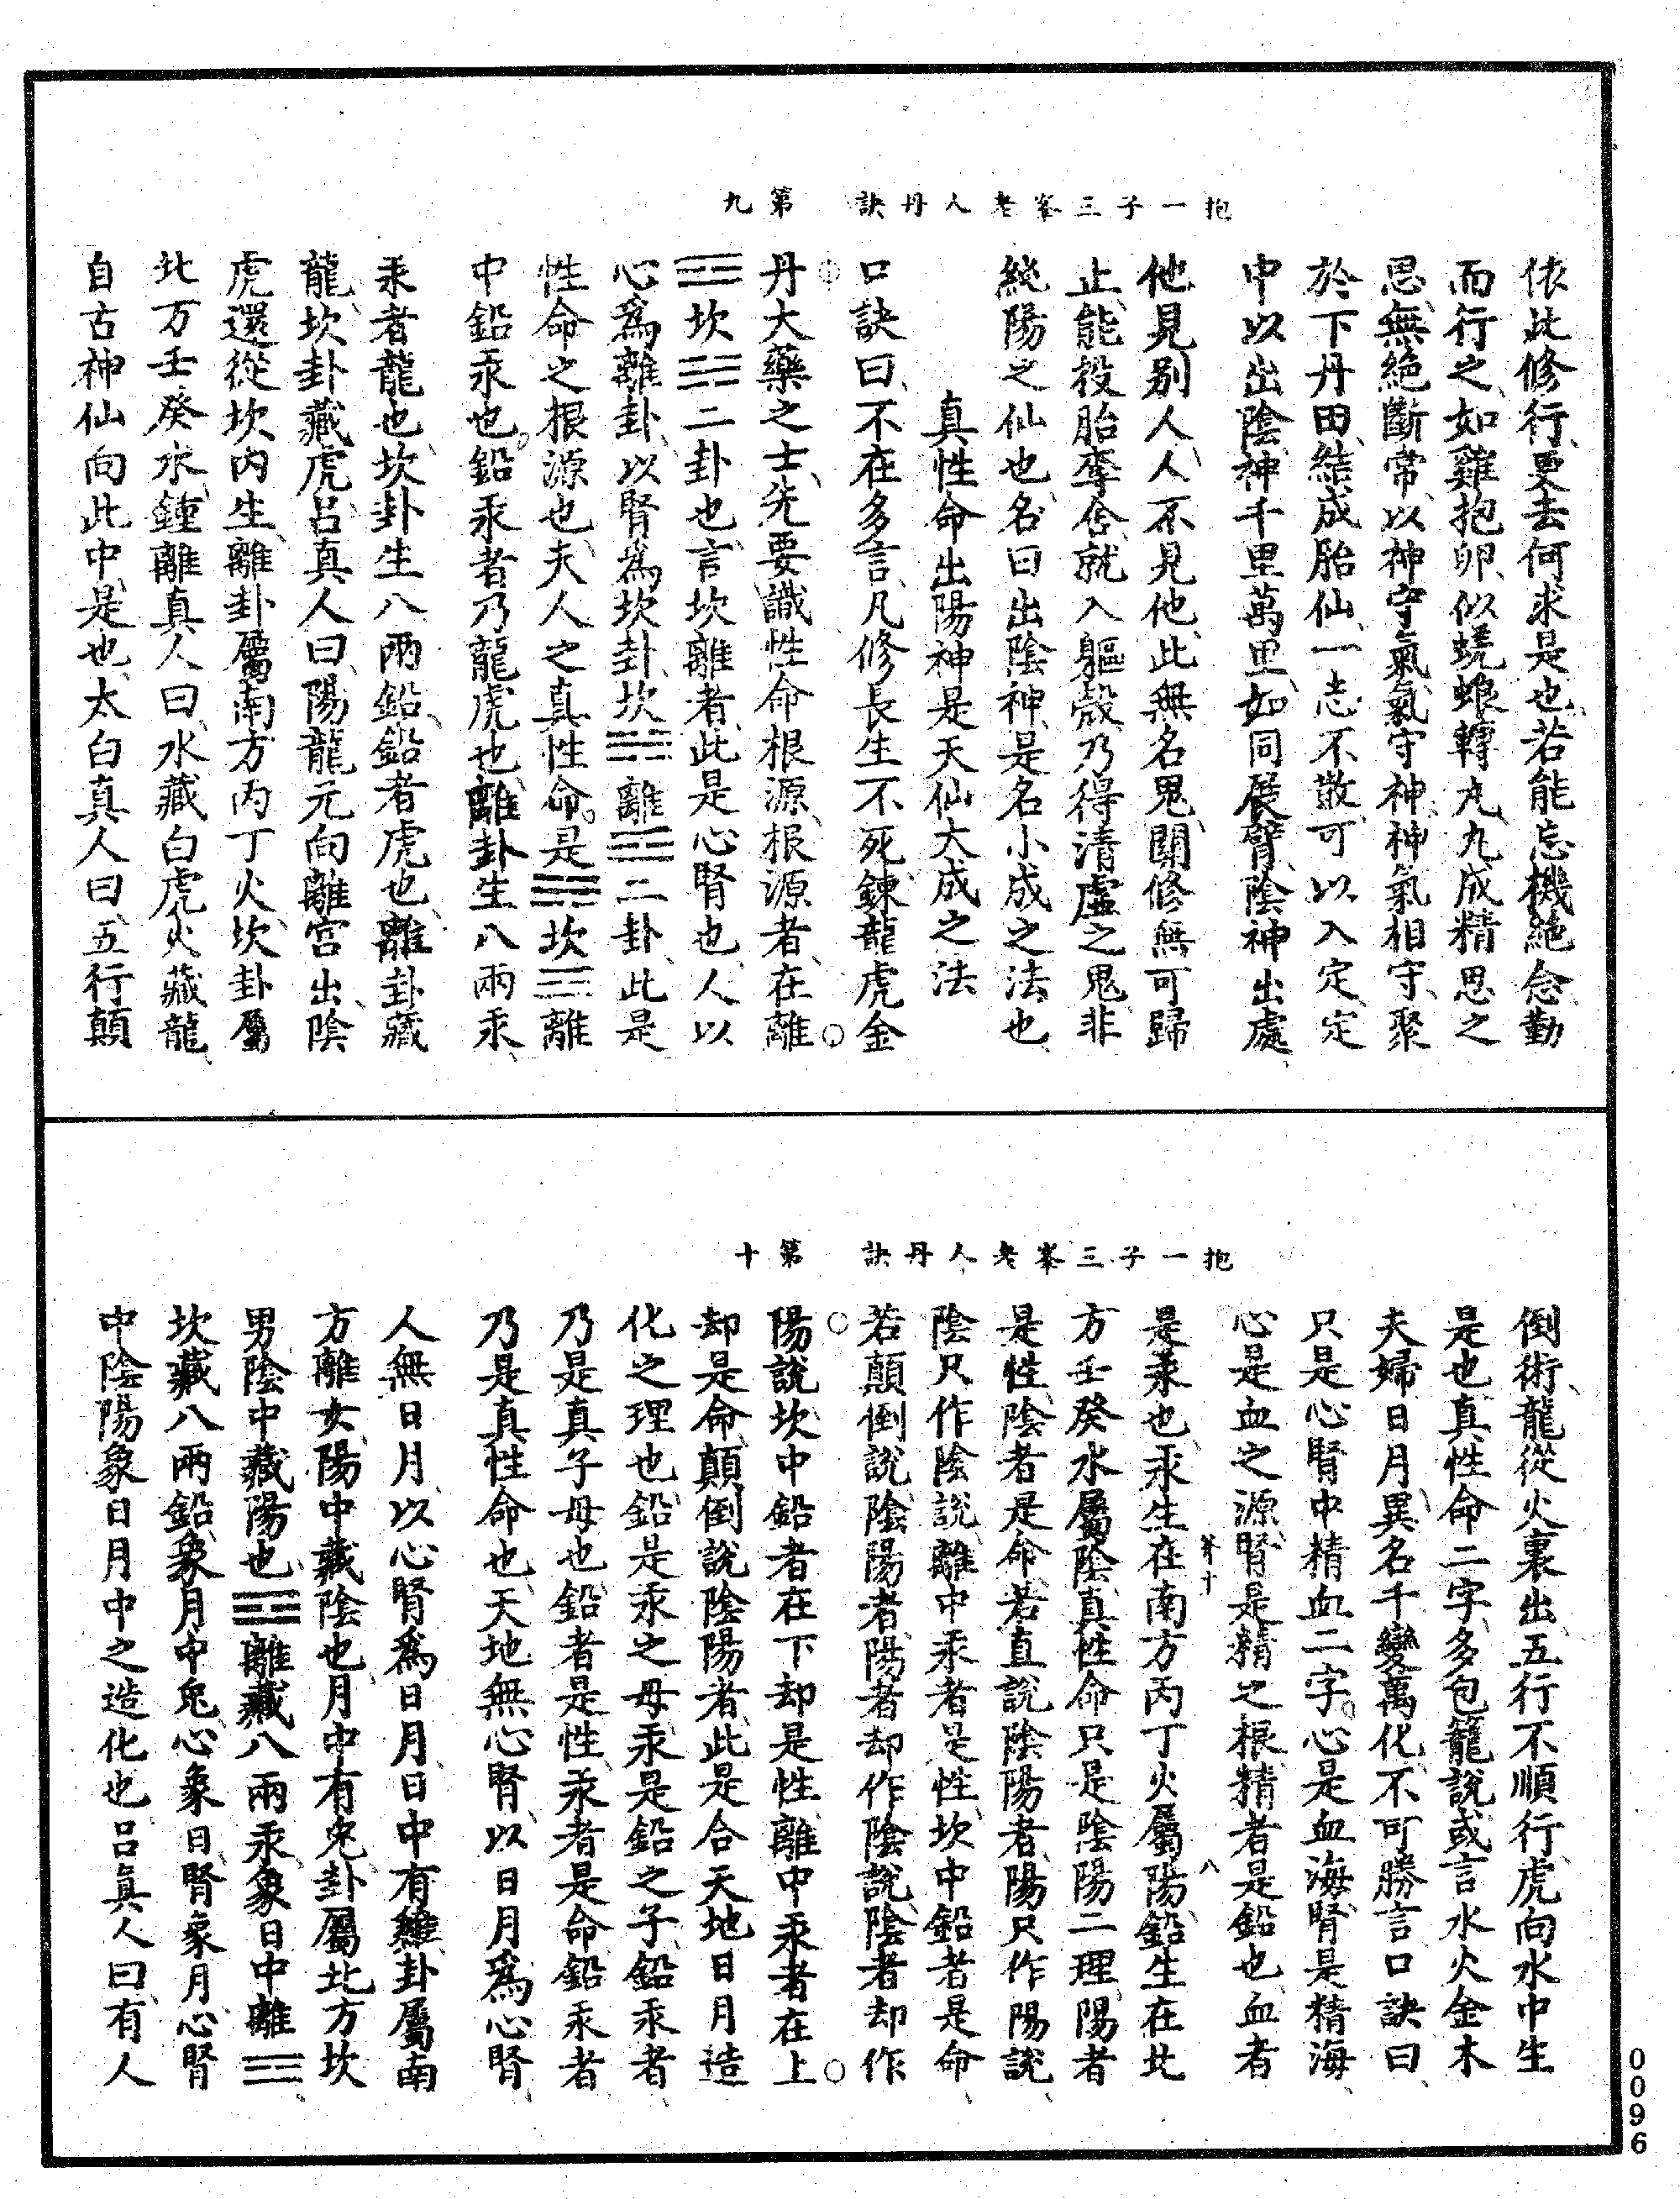 依此修行更去何求是也若能忘機絕念勤
而行之如雞抱卵似蜣蜋轉丸九成精思之
思無絕斷常以神守氣氣守神神氣相守聚
於下丹田結成胎仙一志不散可以入定定
中以出陰神千里萬里如同展臂陰神出處
他見別人人不見他此無名鬼關修無可歸
止能投胎奪舍就入軀殼乃得清虛之鬼非
純陽之仙也名曰出陰神是名小成之法也
真性命出陽神是天仙大成之法
口訣曰不在多言凡修長生不死鍊龍虎金
抱一子三峯老人丹訣 第九
丹大藥之士先要識性命根源根源者在離
☲坎☵二卦也言坎離者此是心腎也人以
心為離卦以腎為坎卦坎☵離☲二卦此是
性命之根源也夫人之真性命是☵坎☲離
中鉛汞也鉛汞者乃龍虎也離卦生八兩汞
汞者龍也坎卦生八兩鉛鉛者虎也離卦藏
龍坎卦藏虎呂真人曰陽龍元向離宮出陰
虎還從坎內生離卦屬南方丙丁火坎卦屬
北方壬癸水鍾離真人曰水藏白虎火藏龍
自古神仙向此中是也太白真人曰五行顛
倒術龍從火裏出五行不順行虎向水中生
是也真性命二字多包籠說或言水火金木
夫婦日月異名千變萬化不可勝言口訣曰
只是心腎中精血二字心是血海腎是精海
心是血之源腎是精之根精者是鉛也血者
是汞也汞生在南方丙丁火屬陽鉛生在北
方壬癸水屬陰真性命只是陰陽二理陽者
是性陰者是命若直說陰陽者陽只作陽說
陰只作陰說離中汞者是性坎中鉛者是命
若顛倒說陰陽者陽者却作陰說陰者却作
抱一子三峯老人丹訣 第十
陽說坎中鉛者在下却是性離中汞者在上
却是命顛倒說陰陽者此是合天地日月造
化之理也鉛是汞之母汞是鉛之子鉛汞者
乃是真子母也鉛者是性汞者是命鉛汞者
乃是真性命也天地無心腎以日月為心腎
人無日月以心腎為日月日中有雞卦屬南
方離女陽中藏陰也月中有兔卦屬北方坎
男陰中藏陽也☵離藏八兩汞象日中離☲
坎藏八兩鉛象月中兔心象日腎象月心腎
中陰陽象日月中之造化也呂真人曰有人
0096